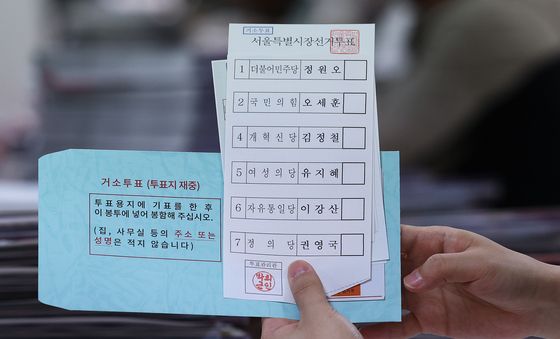 거소투표
서울특별시장선거투표
1 더불어민주당 정원오
2 국민의힘 오세훈
4 개혁신당 김정철
5 여성의당 유지혜
6 자유통일당 이강산
7 정의당 권영국
투표관리관
거소투표 (투표지 재중)
투표용지에 기표를 한 후
이 봉투에 넣어 봉함해 주십시오.
(집, 사무실 등의 주소 또는
성명은 적지 않습니다)